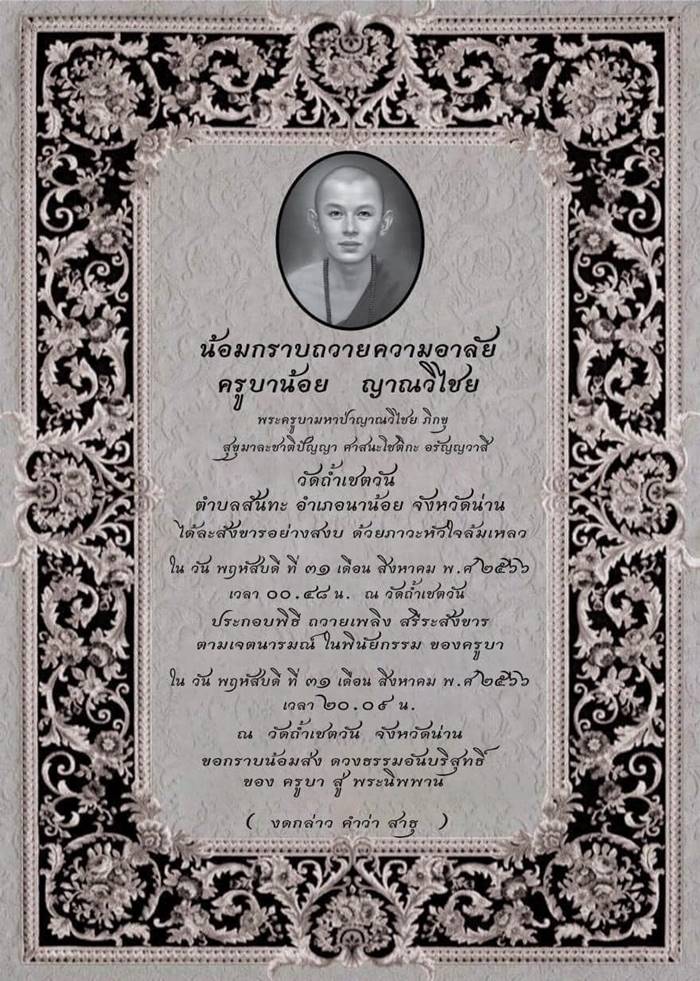 น้อมกราบถวายความอาลัย
ครูบาน้อย ญาณวิไชย
พระครูบามหาป่าญาณวิไชย ภิกขุ
สุขุมาละชาติปัญญา ศาสนะโชติกะ อรัญญวาสี
วัดถ้ำเชตวัน
ตำบลสันทะ อำเภอนาน้อย จังหวัดน่าน
ได้ละสังขารอย่างสงบ ด้วยภาวะหัวใจล้มเหลว
ใน วัน พฤหัสบดี ที่ ๓๑ เดือน สิงหาคม พ.ศ ๒๕๖๖
เวลา ๐๐.๔๘ น. ณ วัดถ้ำเชตวัน
ประกอบพิธี ถวายเพลิง สรีระสังขาร
ตามเจตนารมณ์ ในพินัยกรรม ของครูบา
ใน วัน พฤหัสบดี ที่ ๓๑ เดือน สิงหาคม พ.ศ ๒๕๖๖
เวลา ๒๐.๐๙ น.
ณ วัดถ้ำเชตวัน จังหวัดน่าน
ขอกราบน้อมส่ง ดวงธรรมอันบริสุทธิ์
ของ ครูบา สู่ พระนิพพาน
( งดกล่าว คำว่า สาธุ )